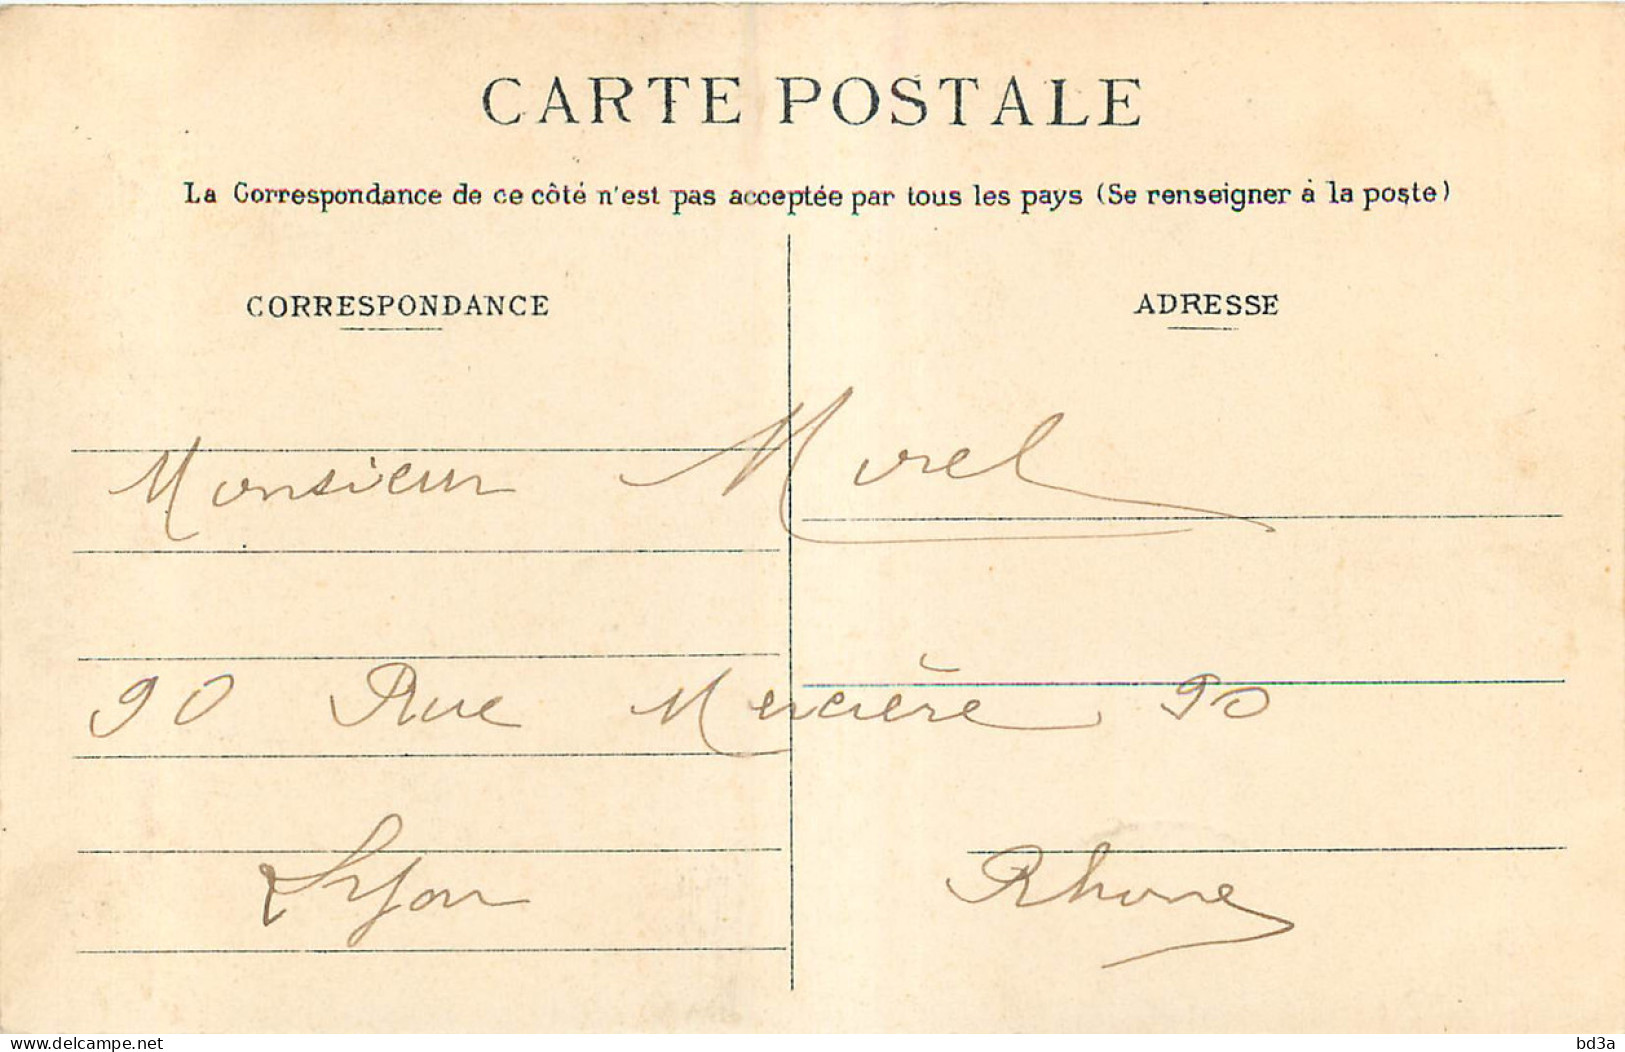 CARTE POSTALE
La Correspondance de ce côté n'est pas acceptée par tous les pays (Se renseigner à la poste)
CORRESPONDANCE
ADRESSE
Monsieur Morel
90 Rue Mercière 90
Lyon Rhone
www.delcampe.net
bd3a